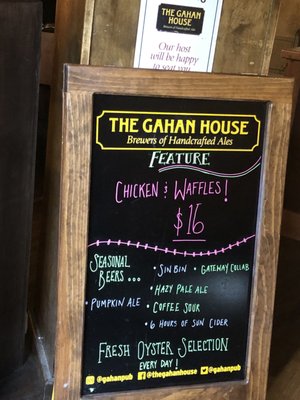 THE GAHAN
HOUSE
Our host
will be happy
to seat you
THE GAHAN HOUSE
Brewers of Handcrafted Ales
FEATURE
CHICKEN & WAFFLES!
$16
SEASONAL
BEERS...
PUMPKIN ALE
• SIN BIN • GATEWAY COLLAB
• HAZY PALE ALE
• COFFEE SOUR
• 6 HOURS OF SUN CIDER
FRESH OYSTER SELECTION
EVERY DAY!
@gahanpub @thegahanhouse @gahanpub